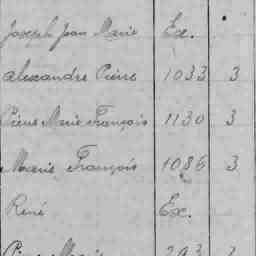 Joseph Jean Marie Ex.
Alexandre Pierre 1033 3
Pierre Marie François 1130 3
Marie François 1086 3
René Ex.
Pierre Marie 293